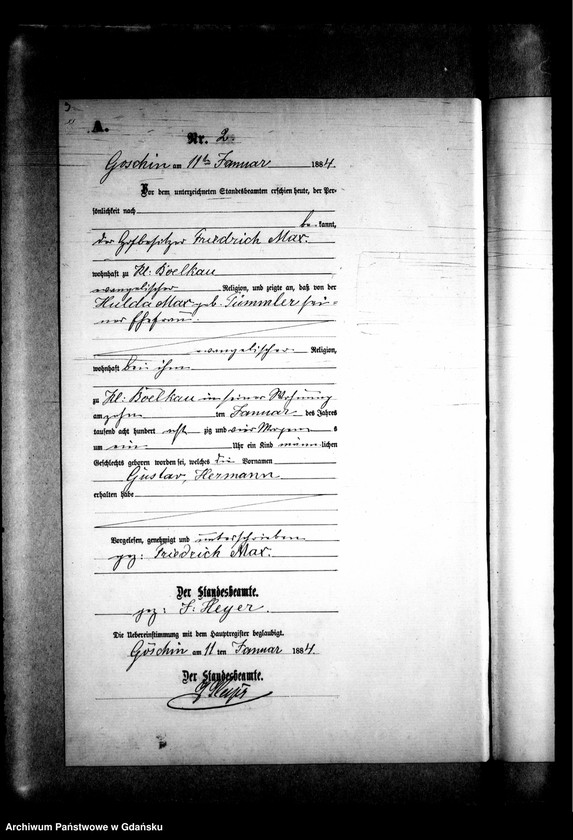 A.
Nr. 2
Goschin am 11ten Januar 1884.
Vor dem unterzeichneten Standesbeamten erschien heute, der Per-
sönlichkeit nach
be kannt,
der Hofbesitzer Friedrich Max.
wohnhaft zu Kl: Boelkau
evangelischer Religion, und zeigte an, daß von der
Hulda Max geb. Tümmler sei-
ner Ehefrau.
evangelischer Religion,
wohnhaft bei ihm
zu Kl: Boelkau in seiner Wohnung
am zehn ten Januar des Jahres
tausend acht hundert acht zig und vier Morgen s
um ein Uhr ein Kind männ lichen
Geschlechts geboren worden sei, welches die Vornamen
Gustav, Hermann
erhalten habe
Vorgelesen, genehmigt und unterschrieben
gez: Friedrich Max.
Der Standesbeamte.
gez: Heyer.
Die Uebereinstimmung mit dem Hauptregister beglaubigt.
Goschin am 11 ten Januar 1884.
Der Standesbeamte.
Heyer
Archiwum Państwowe w Gdańsku